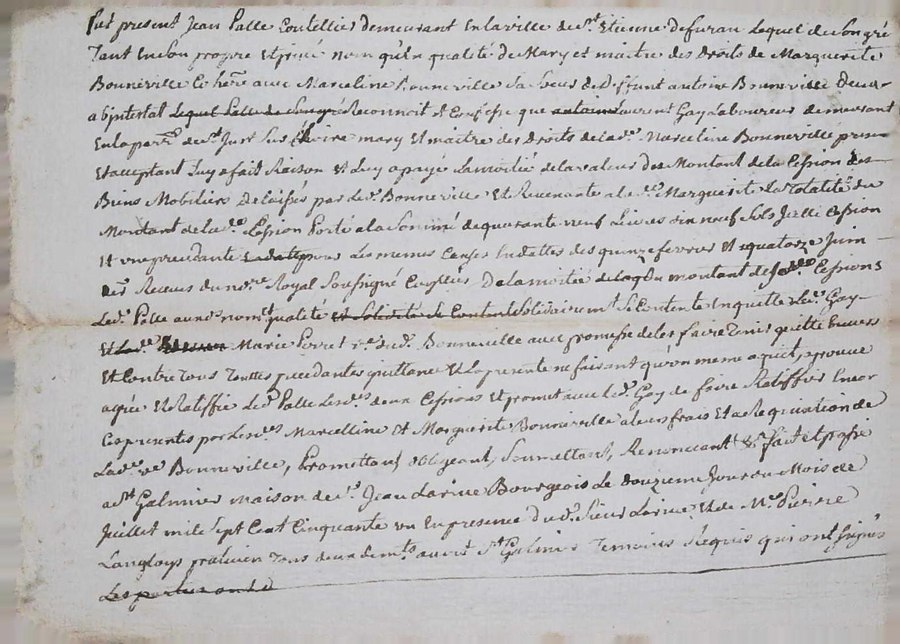 fut present Jean Palle Coutellier demeurant En la ville de st Etienne de furan Lequel de Son gré
Tant En Son propre Et privé nom qu'En qualité de Mary et maitre des Droits de Marguerite
Bonneville Co here avec Marceline Bonneville Sa Soeur de deffunt antoine Bonneville
abjntestat Lequel Palle de Son gré Reconnoit et Confesse que antoine Laurent Gay Laboureur demeurant
En la parr. de st Just Sur Loire mary Et maitre des Droits de lad. Marceline Bonneville
Et acceptant Luy a fait Raison Et Luy a payé La moitié de la valeur Des Montant de la Cession des
Biens Mobiliers Delaissés par led. Bonneville Et Revenante a lad. Marguerite La Totalité du
Montant de lad. Cession Porté a la Somme de quarante neuf Livres dix neuf Sols Jcelle Cession
Et une precedante Les memes Causes En dattes des quinze fevrier Et quatorze Juin
Recues du no.re Royal Soussigné De la moitié du montant Cessions
Led. Palle aux nom et qualité Se Contente En quitte Led. Gay
Et Marie Perret ve dud. Bonneville avec promesse de les faire Tenir quitte Envers
Et Contre Tous Touttes precedantes quittance Et La presente ne faisant qu'un meme aquit, aprouve
agrée Et Ratiffie Led. Palle Lesd. deux Cessions Et promet avec Led. Gay de faire Ratiffier
Ces presentes par Lesd. Marcelline Et Marguerite Bonneville a leurs frais Et a la Requisition de
Lad. ve Bonneville, Promettant obligeant, Soumettant, Renoncant fait Et passé
a st Galmier maison de sr Jean Larive Bourgeois Le douzieme Jour du Mois de
Juillet mil Sept Cent Cinquante un En presence dud. Sieur Larive Et de Me Pierre
Langloys praticien Tous deux aud. st Galmier Temoins Requis qui ont Signés